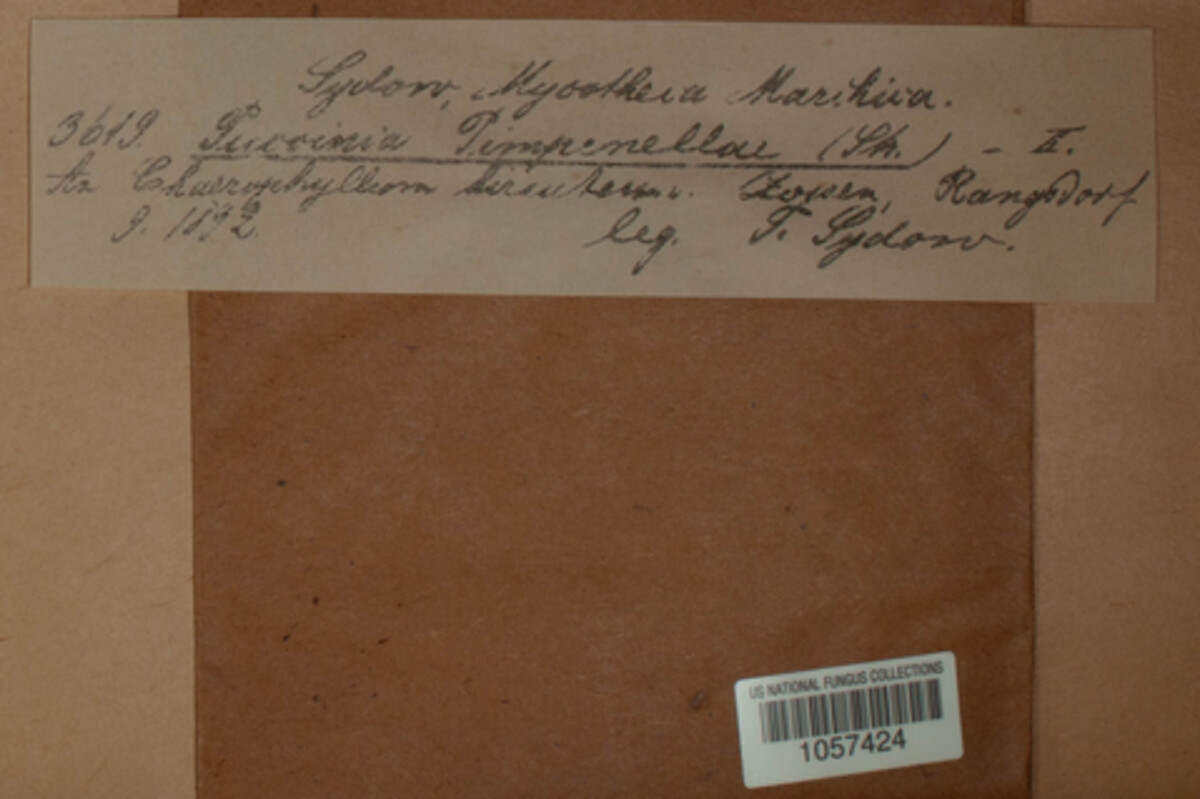 Sydow, Mycotheca Marchica.
3619. Puccinia Pimpenellae (Str.) - II.
An Chaerophyllum hirsutum. Zossen, Rangsdorf
9. 1892. leg. P. Sydow.
US NATIONAL FUNGUS COLLECTIONS
1057424